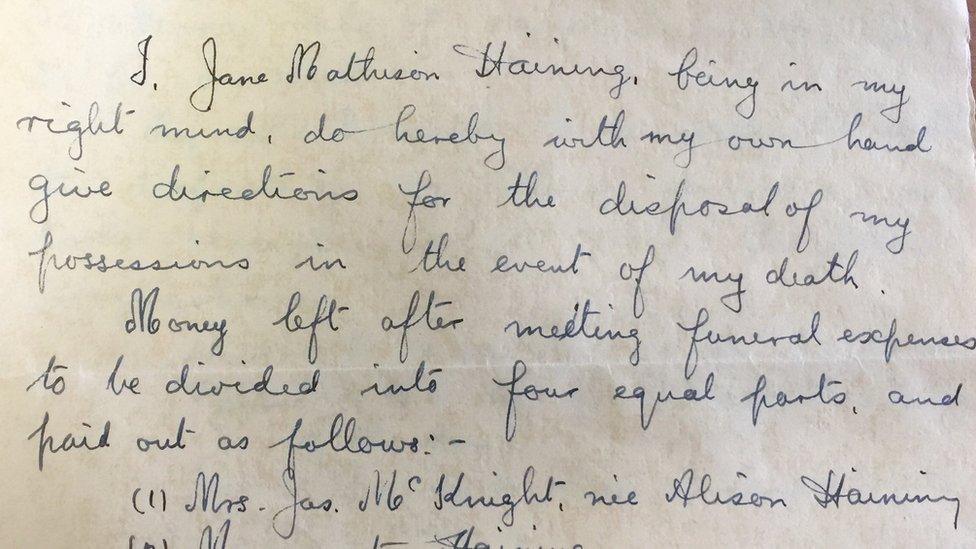 I, Jane Mathison Haining, being in my
right mind, do hereby with my own hand
give directions for the disposal of my
possessions in the event of my death.
Money left after meeting funeral expenses
to be divided into four equal parts, and
paid out as follows:-
(1) Mrs. Jas. McKnight, née Alison Haining
Haining